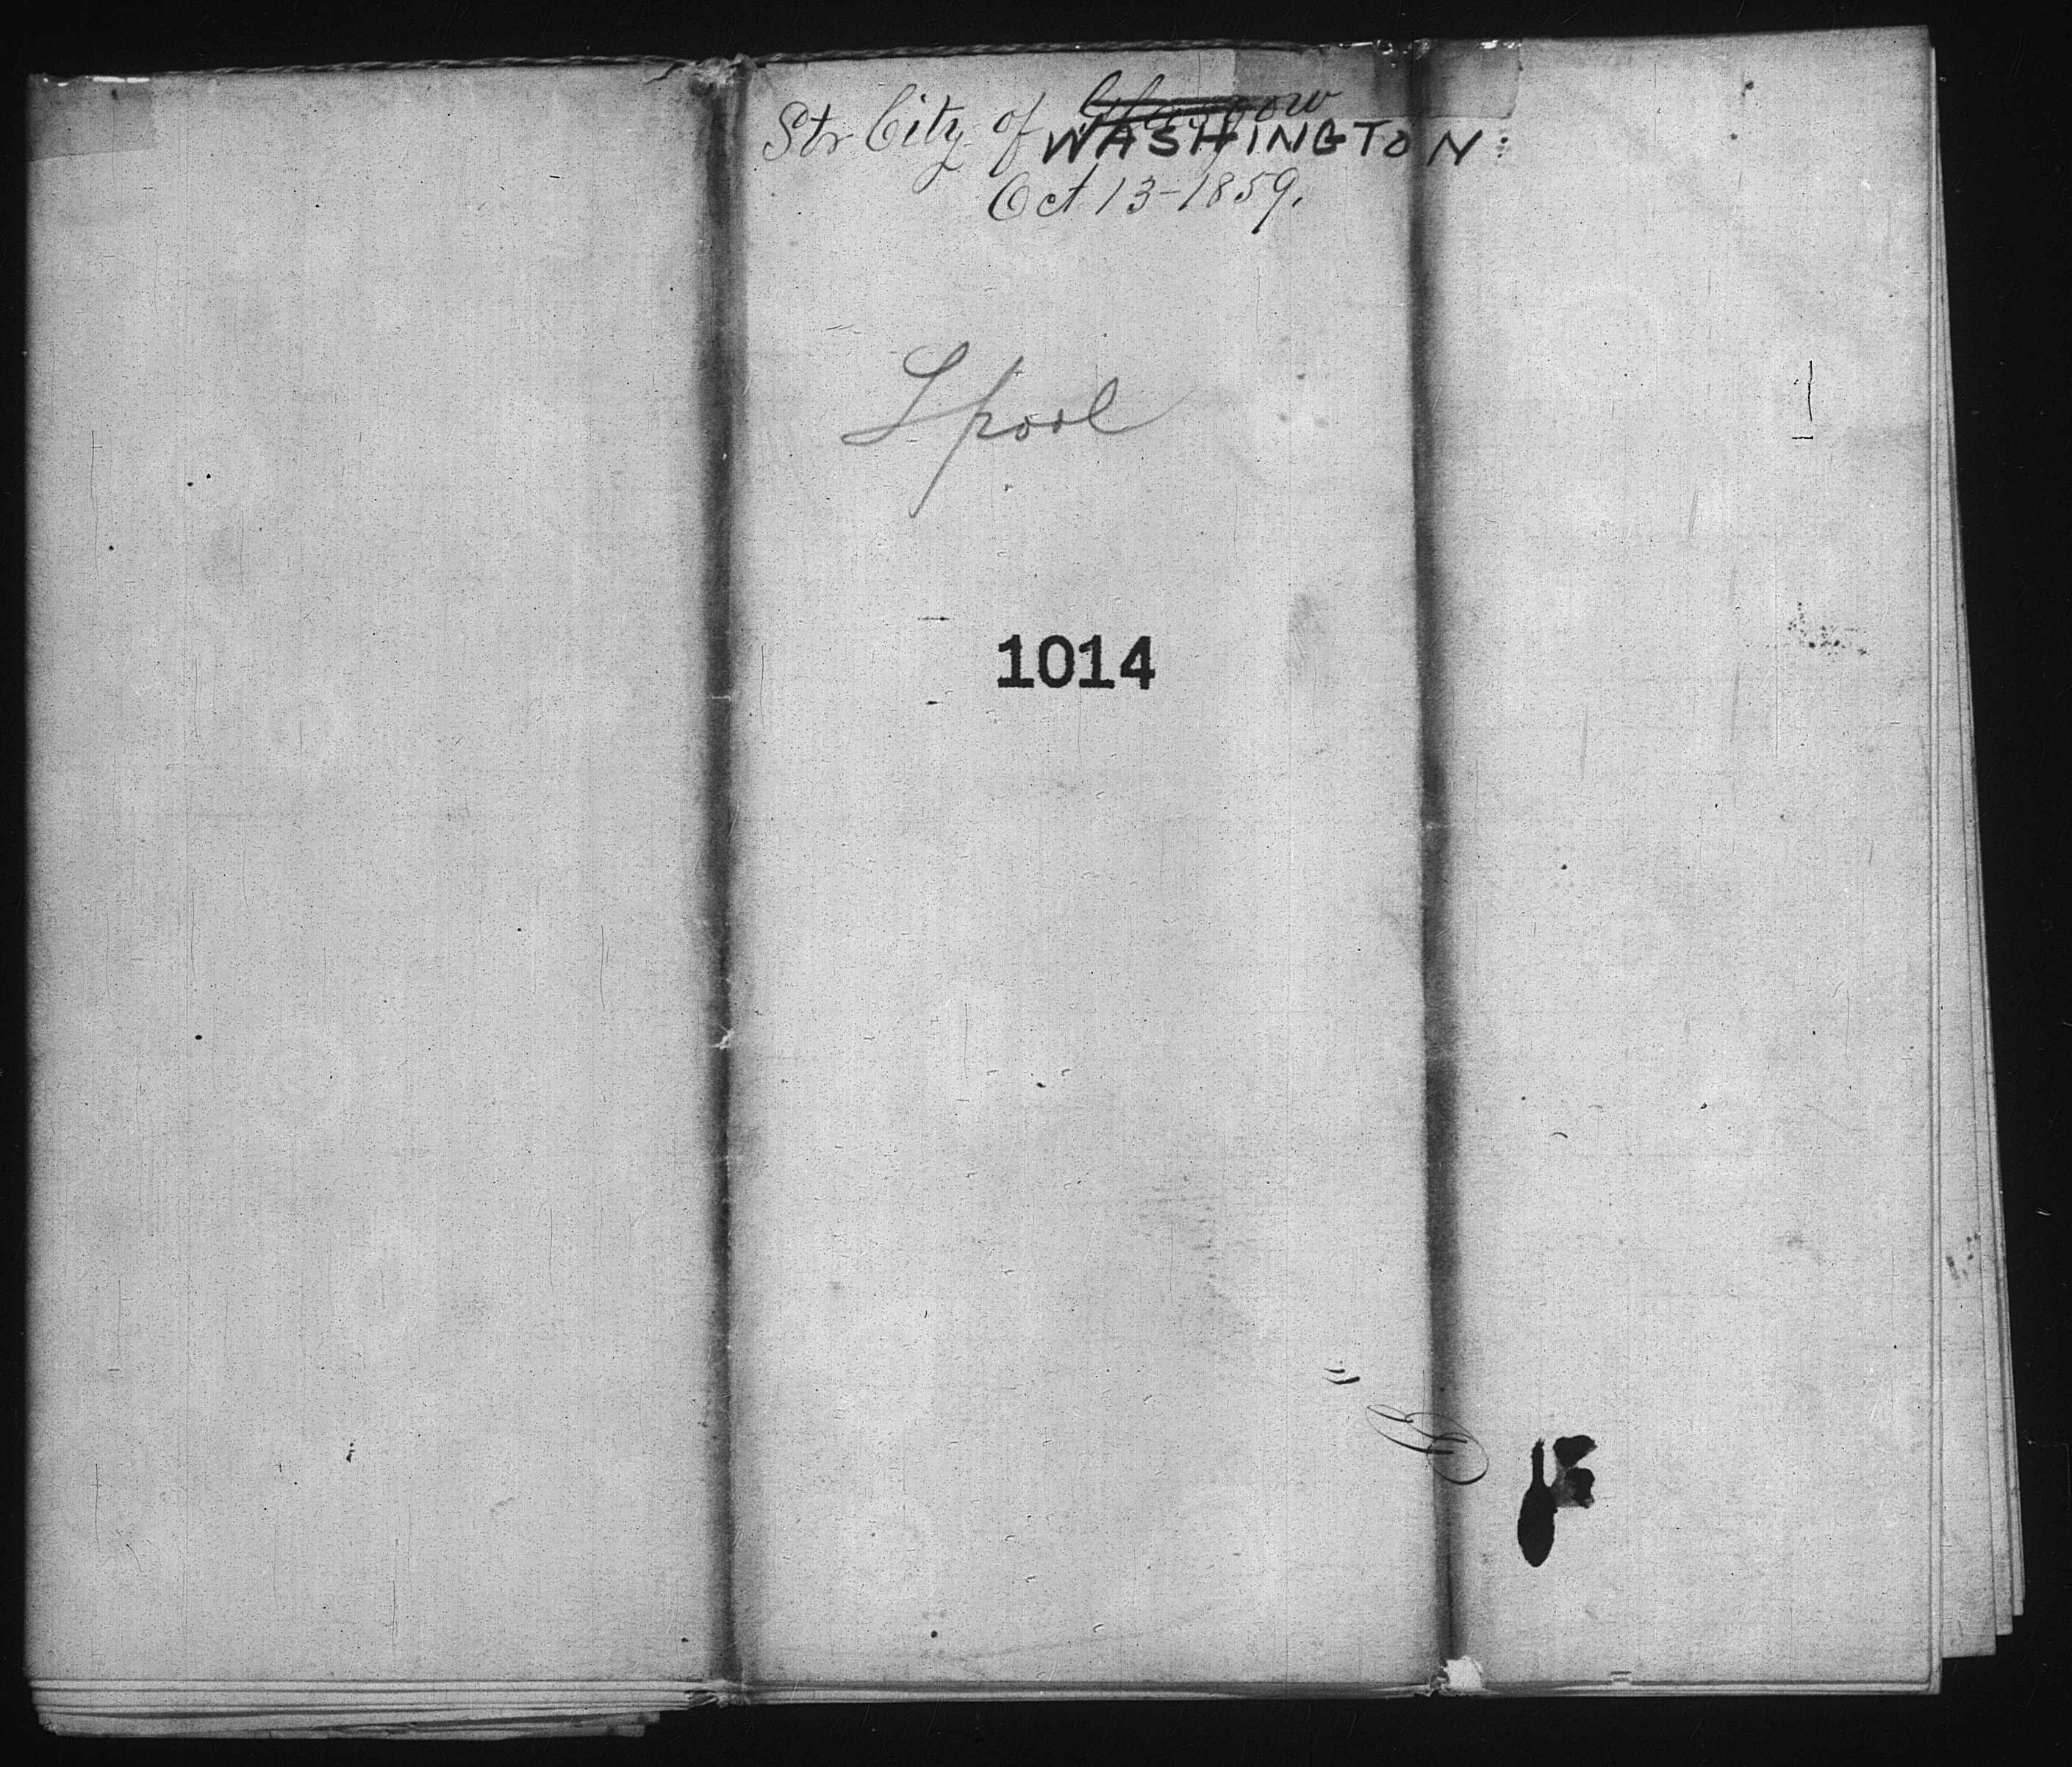 Str City of Glasgow
WASHINGTON
Oct 13-1859.
Lpool
1014